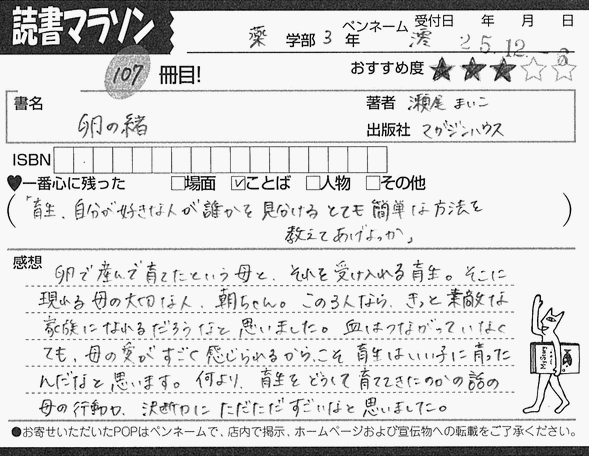 読書マラソン
薬 学部 3 年
ペンネーム 澪
受付日 年 月 日
25.12.-3
107 冊目!
おすすめ度 ★★★☆☆
書名
卵の緒
著者 瀬尾 まいこ
出版社 マガジンハウス
ISBN
♥一番心に残った □場面 ☑ことば □人物 □その他
(「育生、自分が好きな人が誰かを見分けるとても簡単な方法を
教えてあげよっか」)
感想
卵で産んで育てたという母と、それを受け入れる育生。そこに
現れる母の大切な人、朝ちゃん。この3人なら、きっと素敵な
家族になれるだろうなと思いました。血はつながっていなく
ても、母の愛がすごく感じられるから、こそ育生はいい子に育った
んだなと思います。何より、育生をどうして育ててきたのかの話の
母の行動力、決断力にただただすごいなと思いました。
●お寄せいただいたPOPはペンネームで、店内で掲示、ホームページおよび宣伝物への転載をご了承ください。